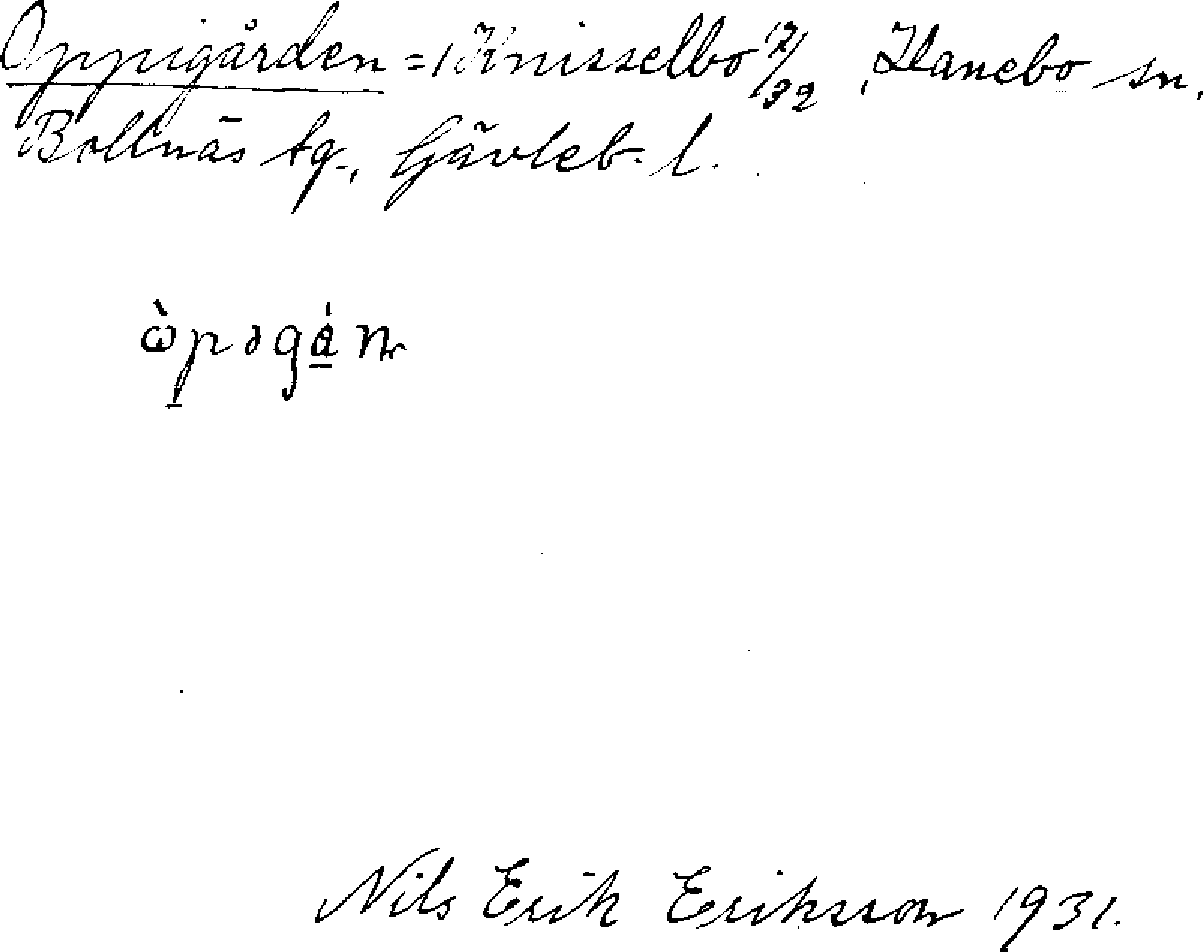 Oppigården = 1 Knisselbo 17/32, Hanebo sn,
Bollnäs tg., Gävleb. l.
ὼpəgán
Nils Erik Eriksson 1931.